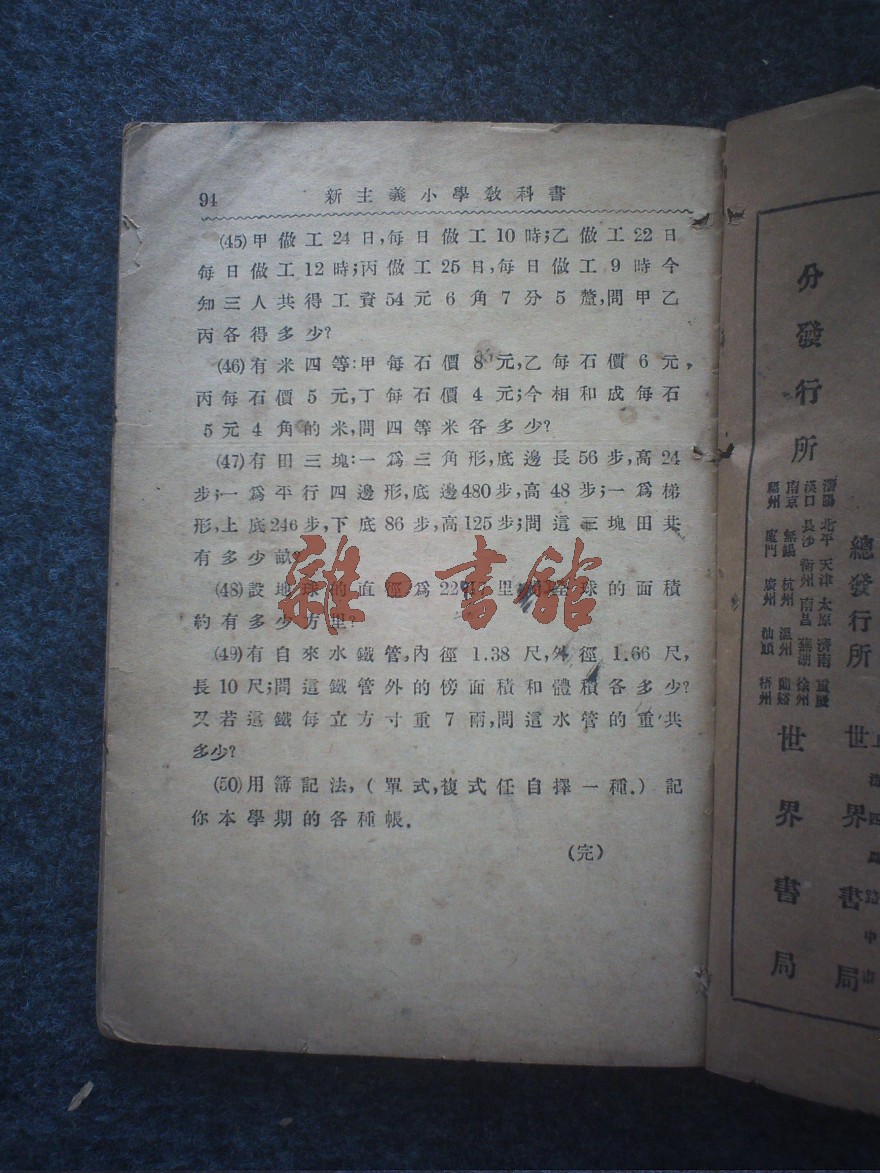 94 新主義小學教科書
(45)甲做工24日,每日做工10時;乙做工22日
每日做工12時;丙做工25日,每日做工9時今
知三人共得工資54元6角7分5釐,問甲乙
丙各得多少?
(46)有米四等:甲每石價8元,乙每石價6元,
丙每石價5元,丁每石價4元;今相和成每石
5元4角的米,問四等米各多少?
(47)有田三塊:一爲三角形,底邊長56步,高24
步;一爲平行四邊形,底邊480步,高48步;一爲梯
形,上底246步,下底86步,高125步;問這三塊田共
有多少畝?
(48)設地球的直徑爲22 里,問全球的面積
約有多少方里?
(49)有自來水鐵管,內徑1.38尺,外徑1.66尺,
長10尺;問這鐵管外的傍面積和體積各多少?
又若這鐵每立方寸重7兩,問這水管的重共
多少?
(50)用簿記法,(單式,複式任自擇一種.)記
你本學期的各種帳.
(完)
雜·書館
分發行所
瀋陽 北平 天津 太原 濟南 重慶
漢口 長沙 衡州 南昌 蕪湖 徐州
南京 無錫 杭州 溫州 蘭谿
福州 廈門 廣州 汕頭 梧州
世界書局
總發行所
世界書局